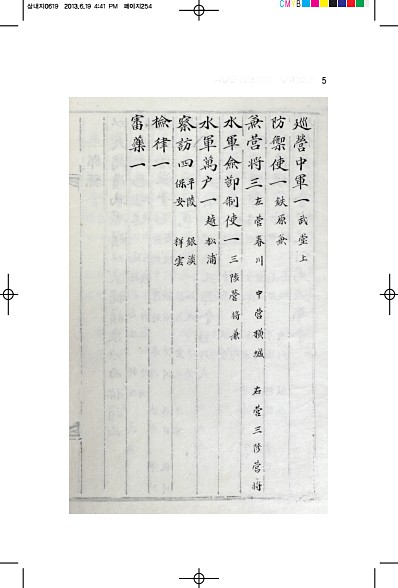 삼내지0619 2013.6.19 4:41 PM 페이지254
CMYB
5
廵營中軍一 武堂上
防禦使一 鉄原兼
兼營将三 左營春川 中營橫城 右營三陟營将
水軍僉節制使一 三陟營将兼
水軍萬户一 越松浦
察訪四 平陵 銀溪 保安 祥雲
撿律一
審藥一